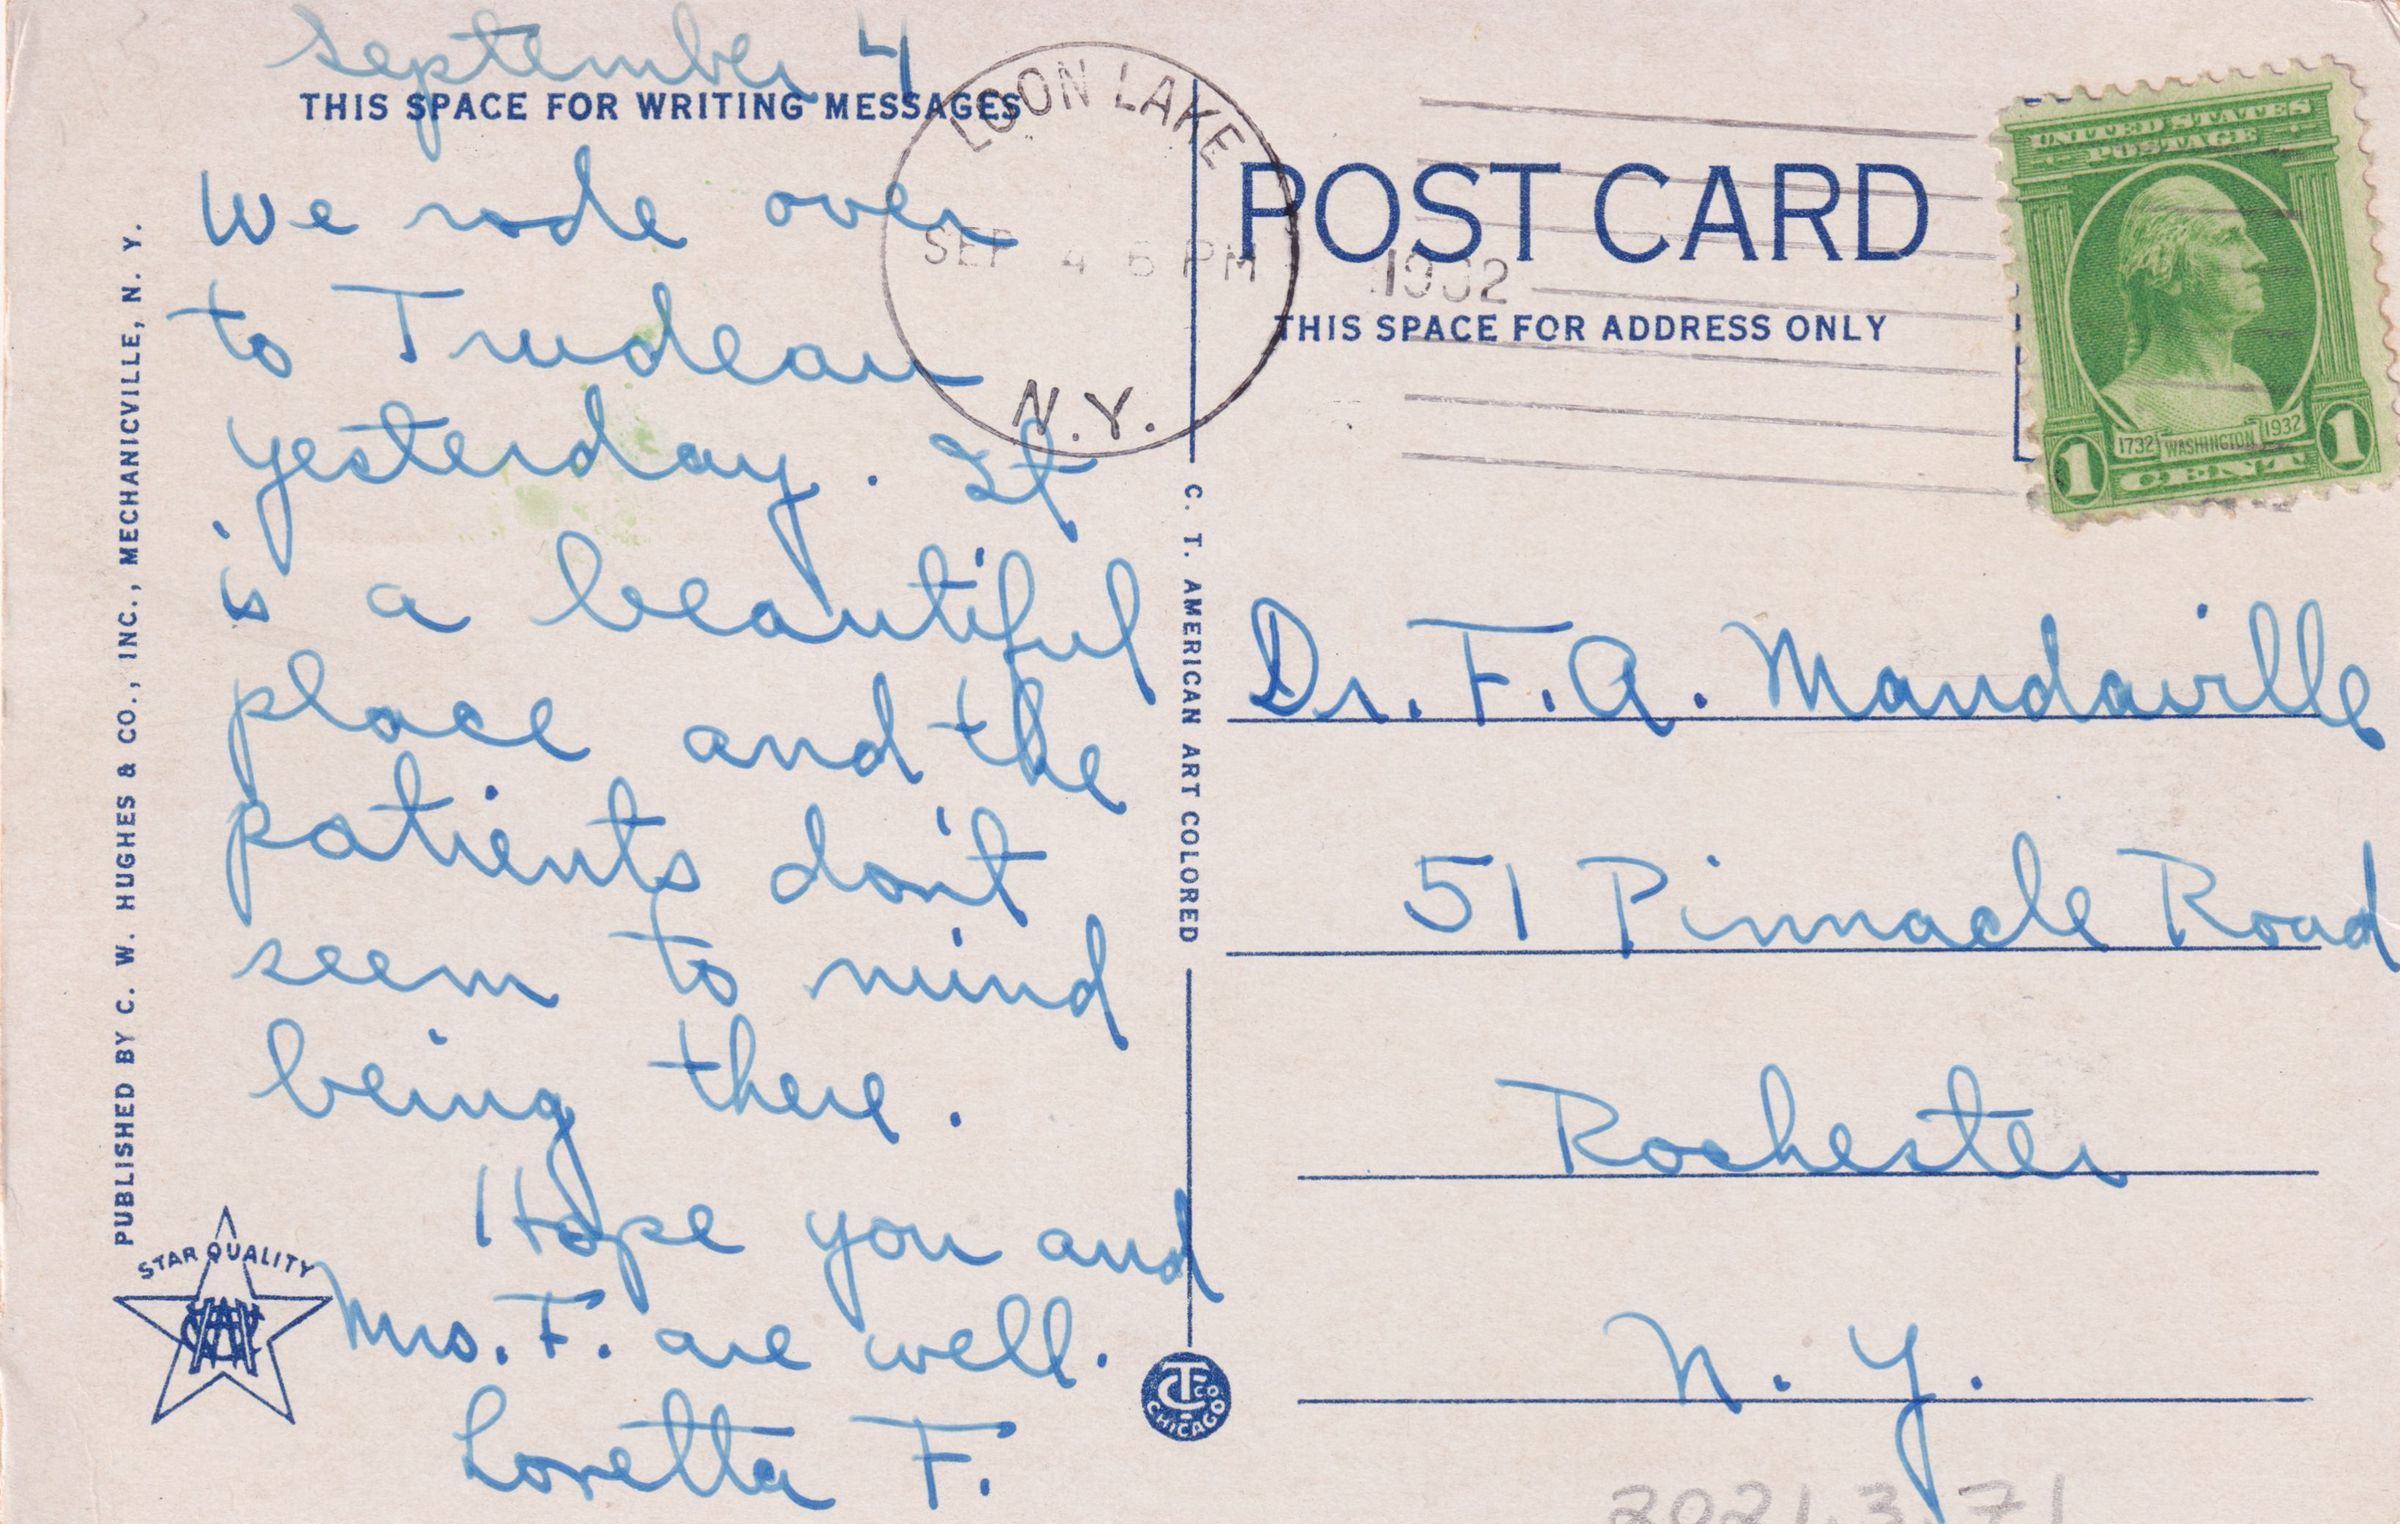 September 4
THIS SPACE FOR WRITING MESSAGES
We rode over
to Trudeau
yesterday. It
is a beautiful
place and the
patients don't
seem to mind
being there.
Hope you and
Mrs. F. are well.
Loretta F.
PUBLISHED BY C. W. HUGHES & CO., INC., MECHANICVILLE, N. Y.
STAR QUALITY
C. T. AMERICAN ART COLORED
CT CO
CHICAGO
LOON LAKE
SEP 4 6 PM
1932
N.Y.
POST CARD
THIS SPACE FOR ADDRESS ONLY
UNITED STATES
POSTAGE
1732 WASHINGTON 1932
1 CENT 1
Dr. F. A. Mandaville
51 Pinnacle Road
Rochester
N. Y.
2021.3.71